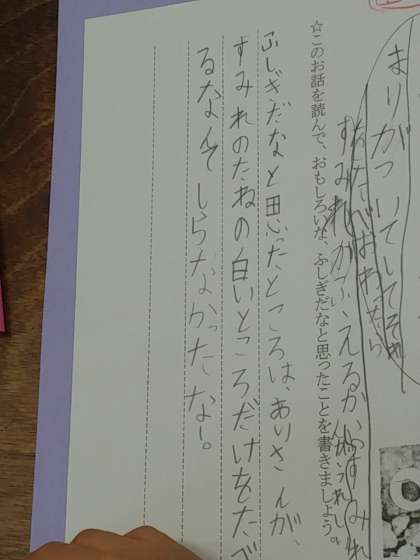 まりがついてしてそれ
たねがおわったら
すみれがふえるから、すみれ
もうれしい。
☆このお話を読んで、おもしろいな、ふしぎだなと思ったことを書きましょう。
ふしぎだなと思ったところは、ありさんが、
すみれのたねの白いところだけをたべ
るなんてしらなかったなー。